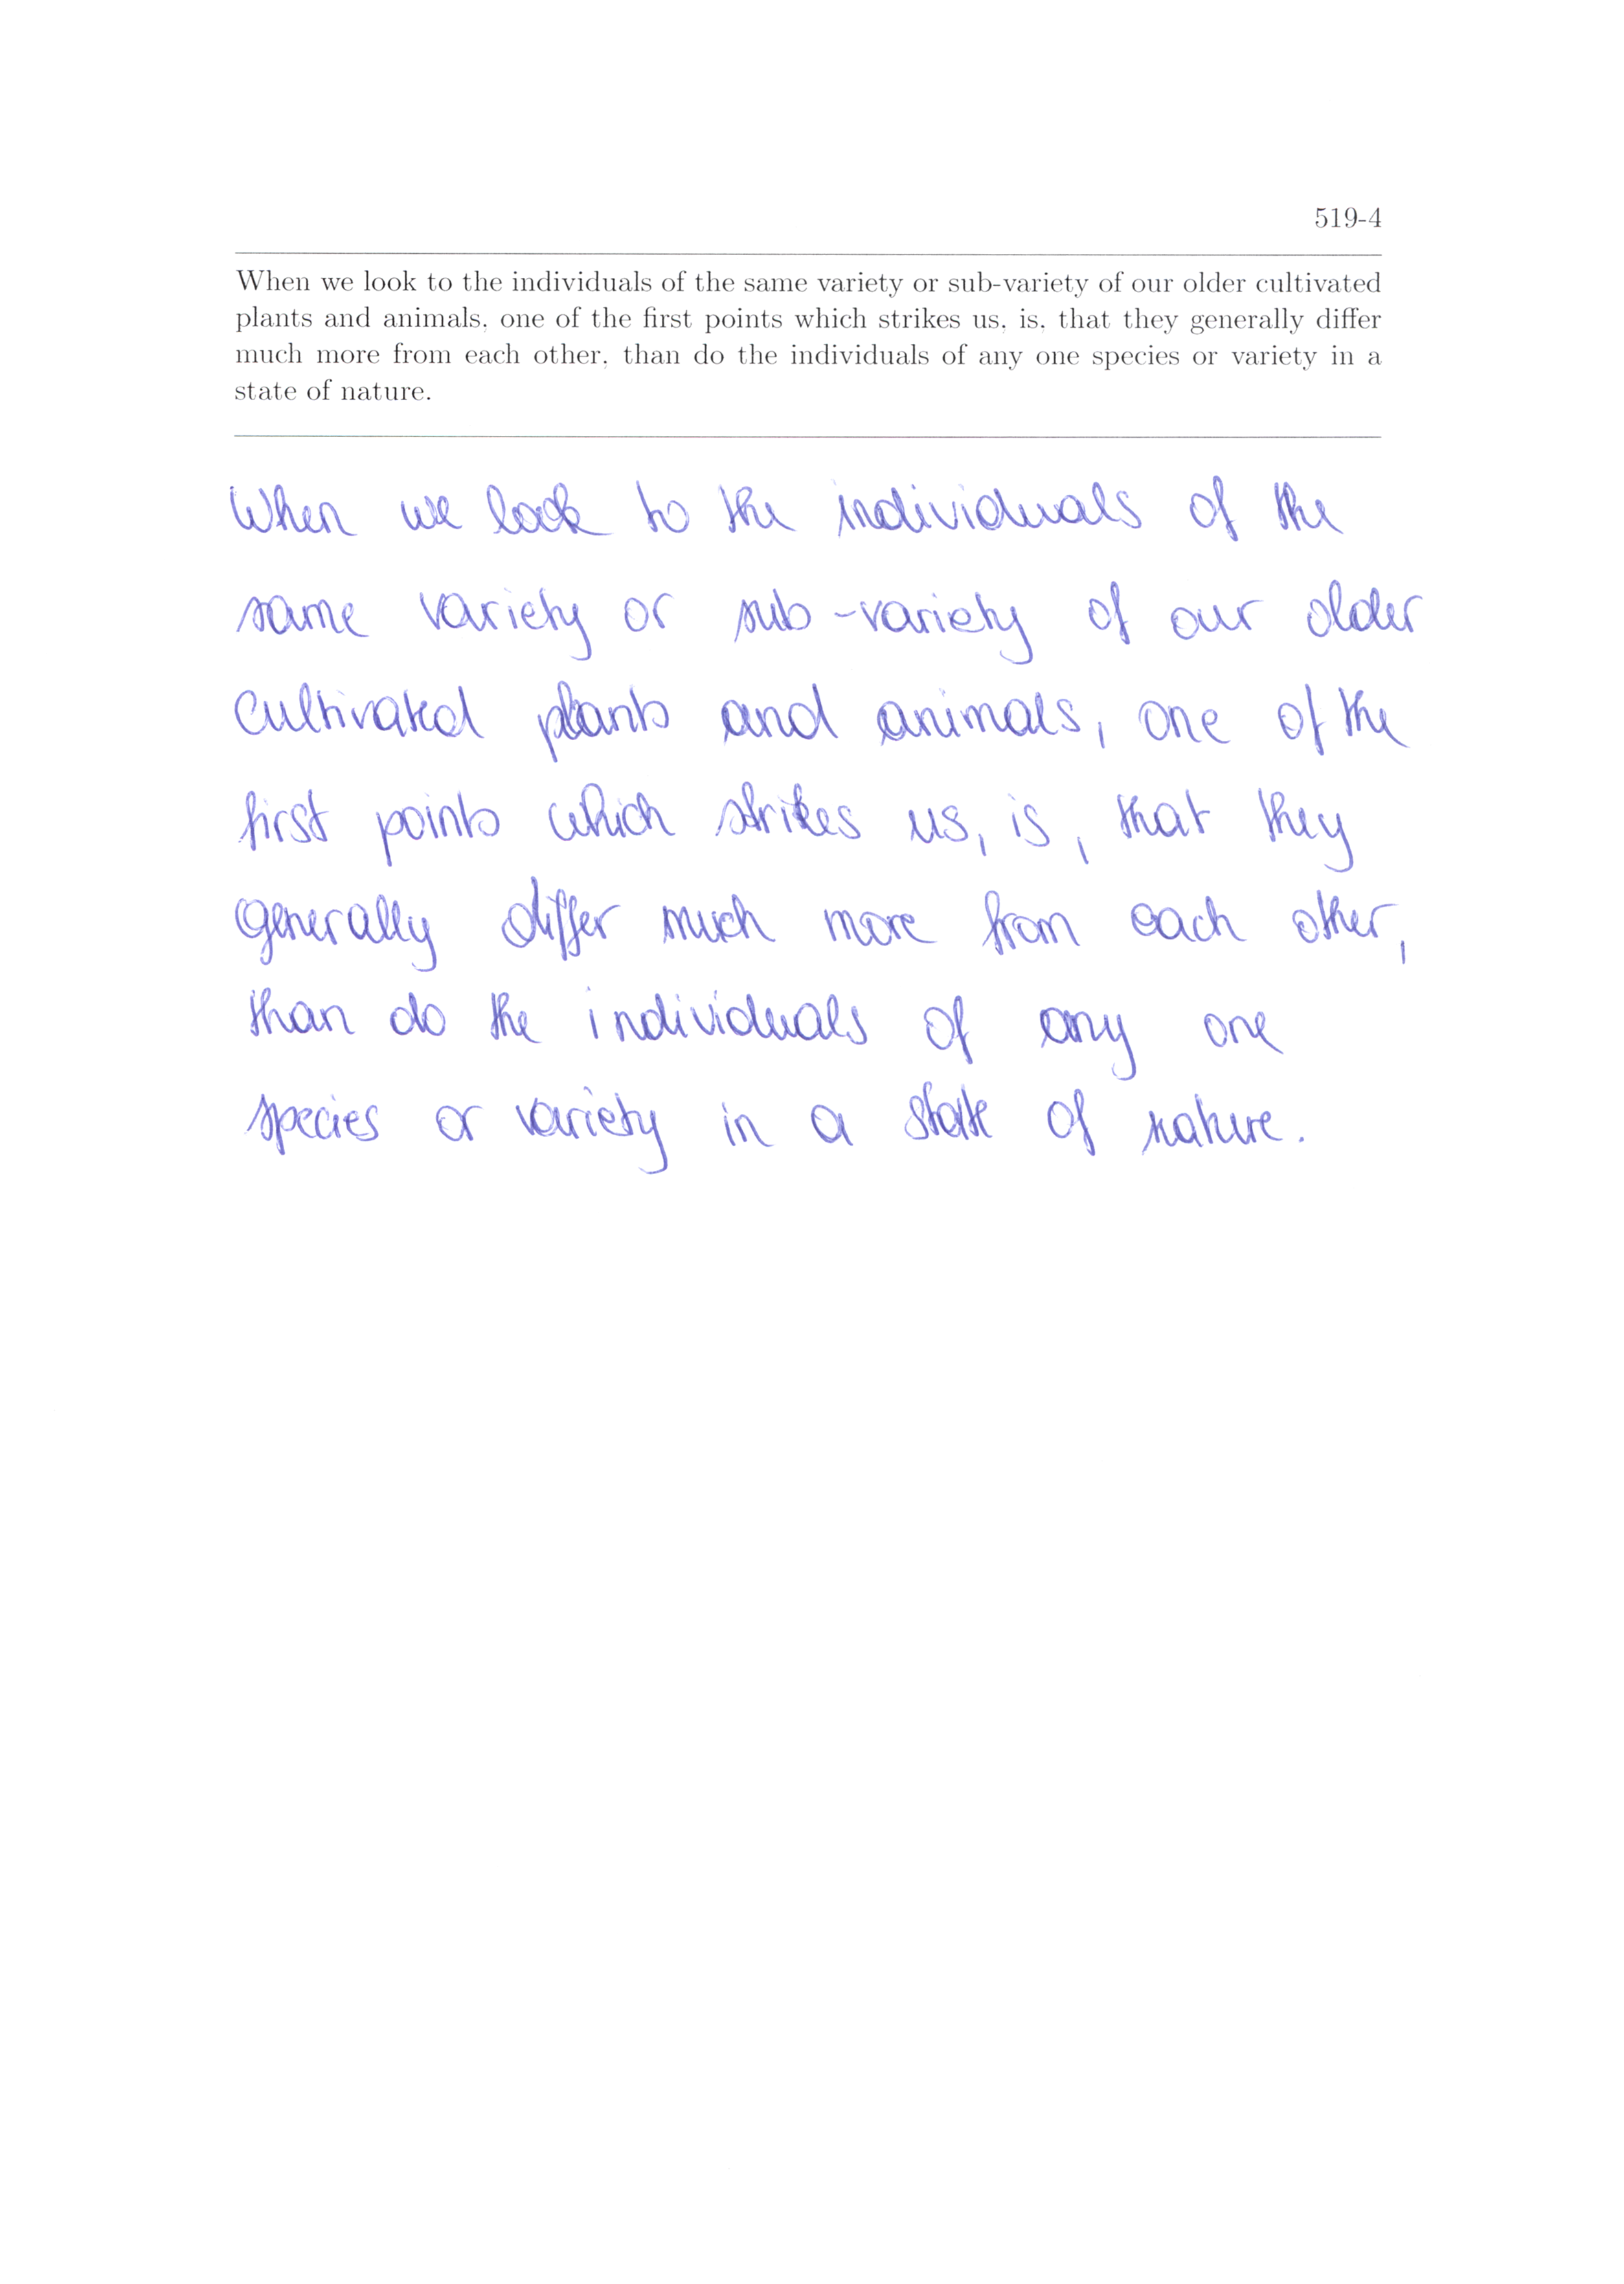 519-4
When we look to the individuals of the same variety or sub-variety of our older cultivated
plants and animals, one of the first points which strikes us, is, that they generally differ
much more from each other, than do the individuals of any one species or variety in a
state of nature.
When we look to the individuals of the
same variety or sub-variety of our older
cultivated plants and animals, one of the
first points which strikes us, is, that they
generally differ much more from each other,
than do the individuals of any one
species or variety in a state of nature.